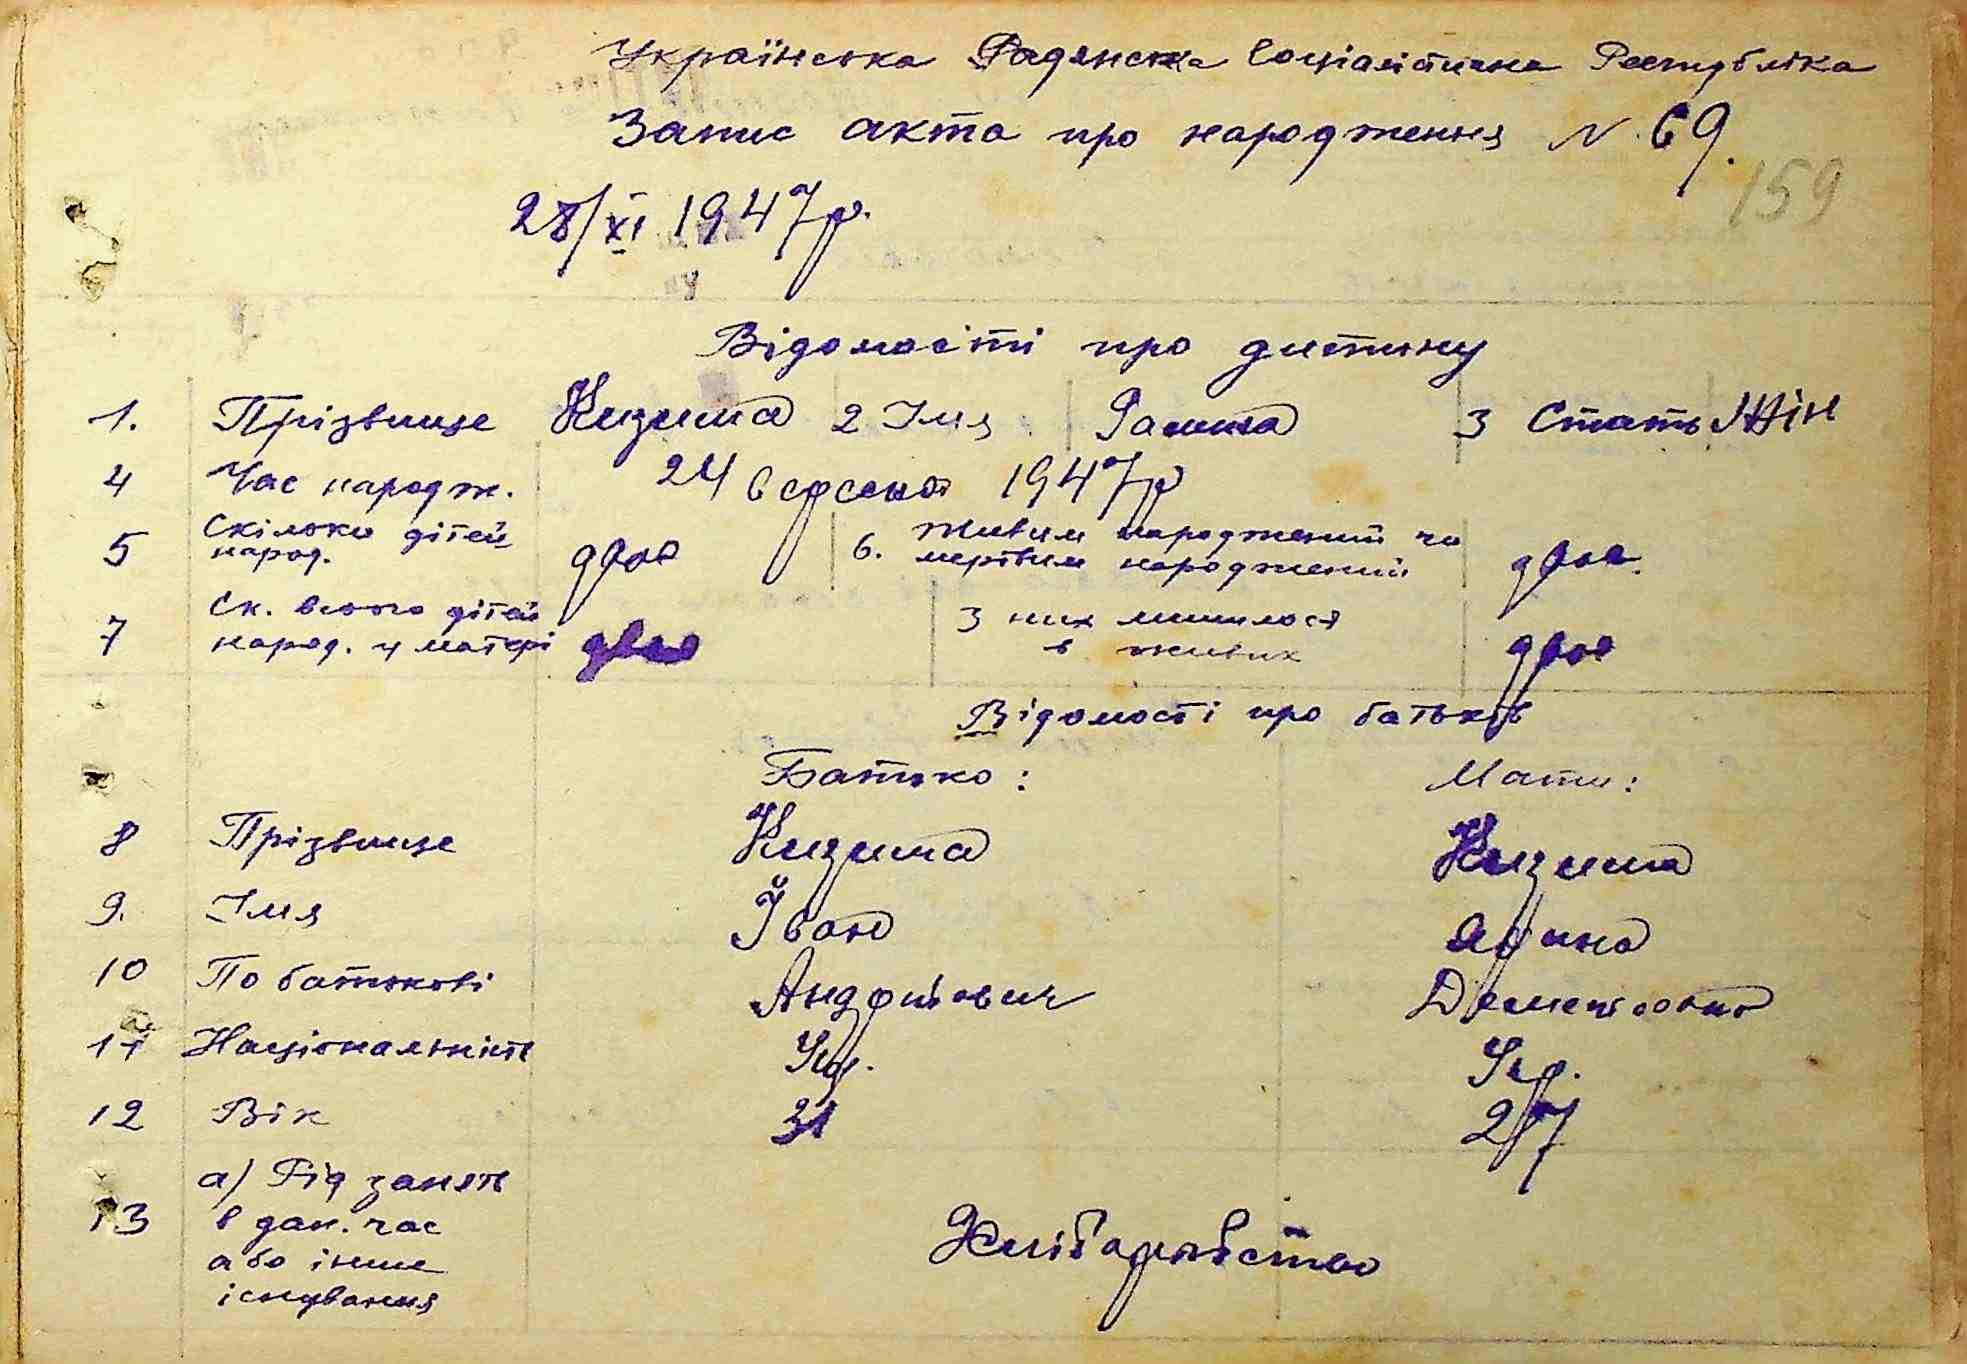 Українська Радянська Соціалістична Республіка
Запис акта про народження N 69.
159
28/XI 1947 р.
Відомості про дитину
1. Прізвище Кизима 2 Імя Ганна 3 Стать Жін
4 Час народж. 24 вересня 1947 р
5 Скільки дітей народ. двое 6. живим народжений чи мертвим народжений двое.
7 Ск. всього дітей народ. у матері двое З них лишилось в живих двое
Відомості про батьків
Батько: Мати:
8 Прізвище Кизима Кизима
9. Імя Іван
10 По батькові Андрійович
11 Національність Укр. Укр.
12 Вік 31 27
13 а) Рід занять
в дан. час
або інше
існування
Хліборобство